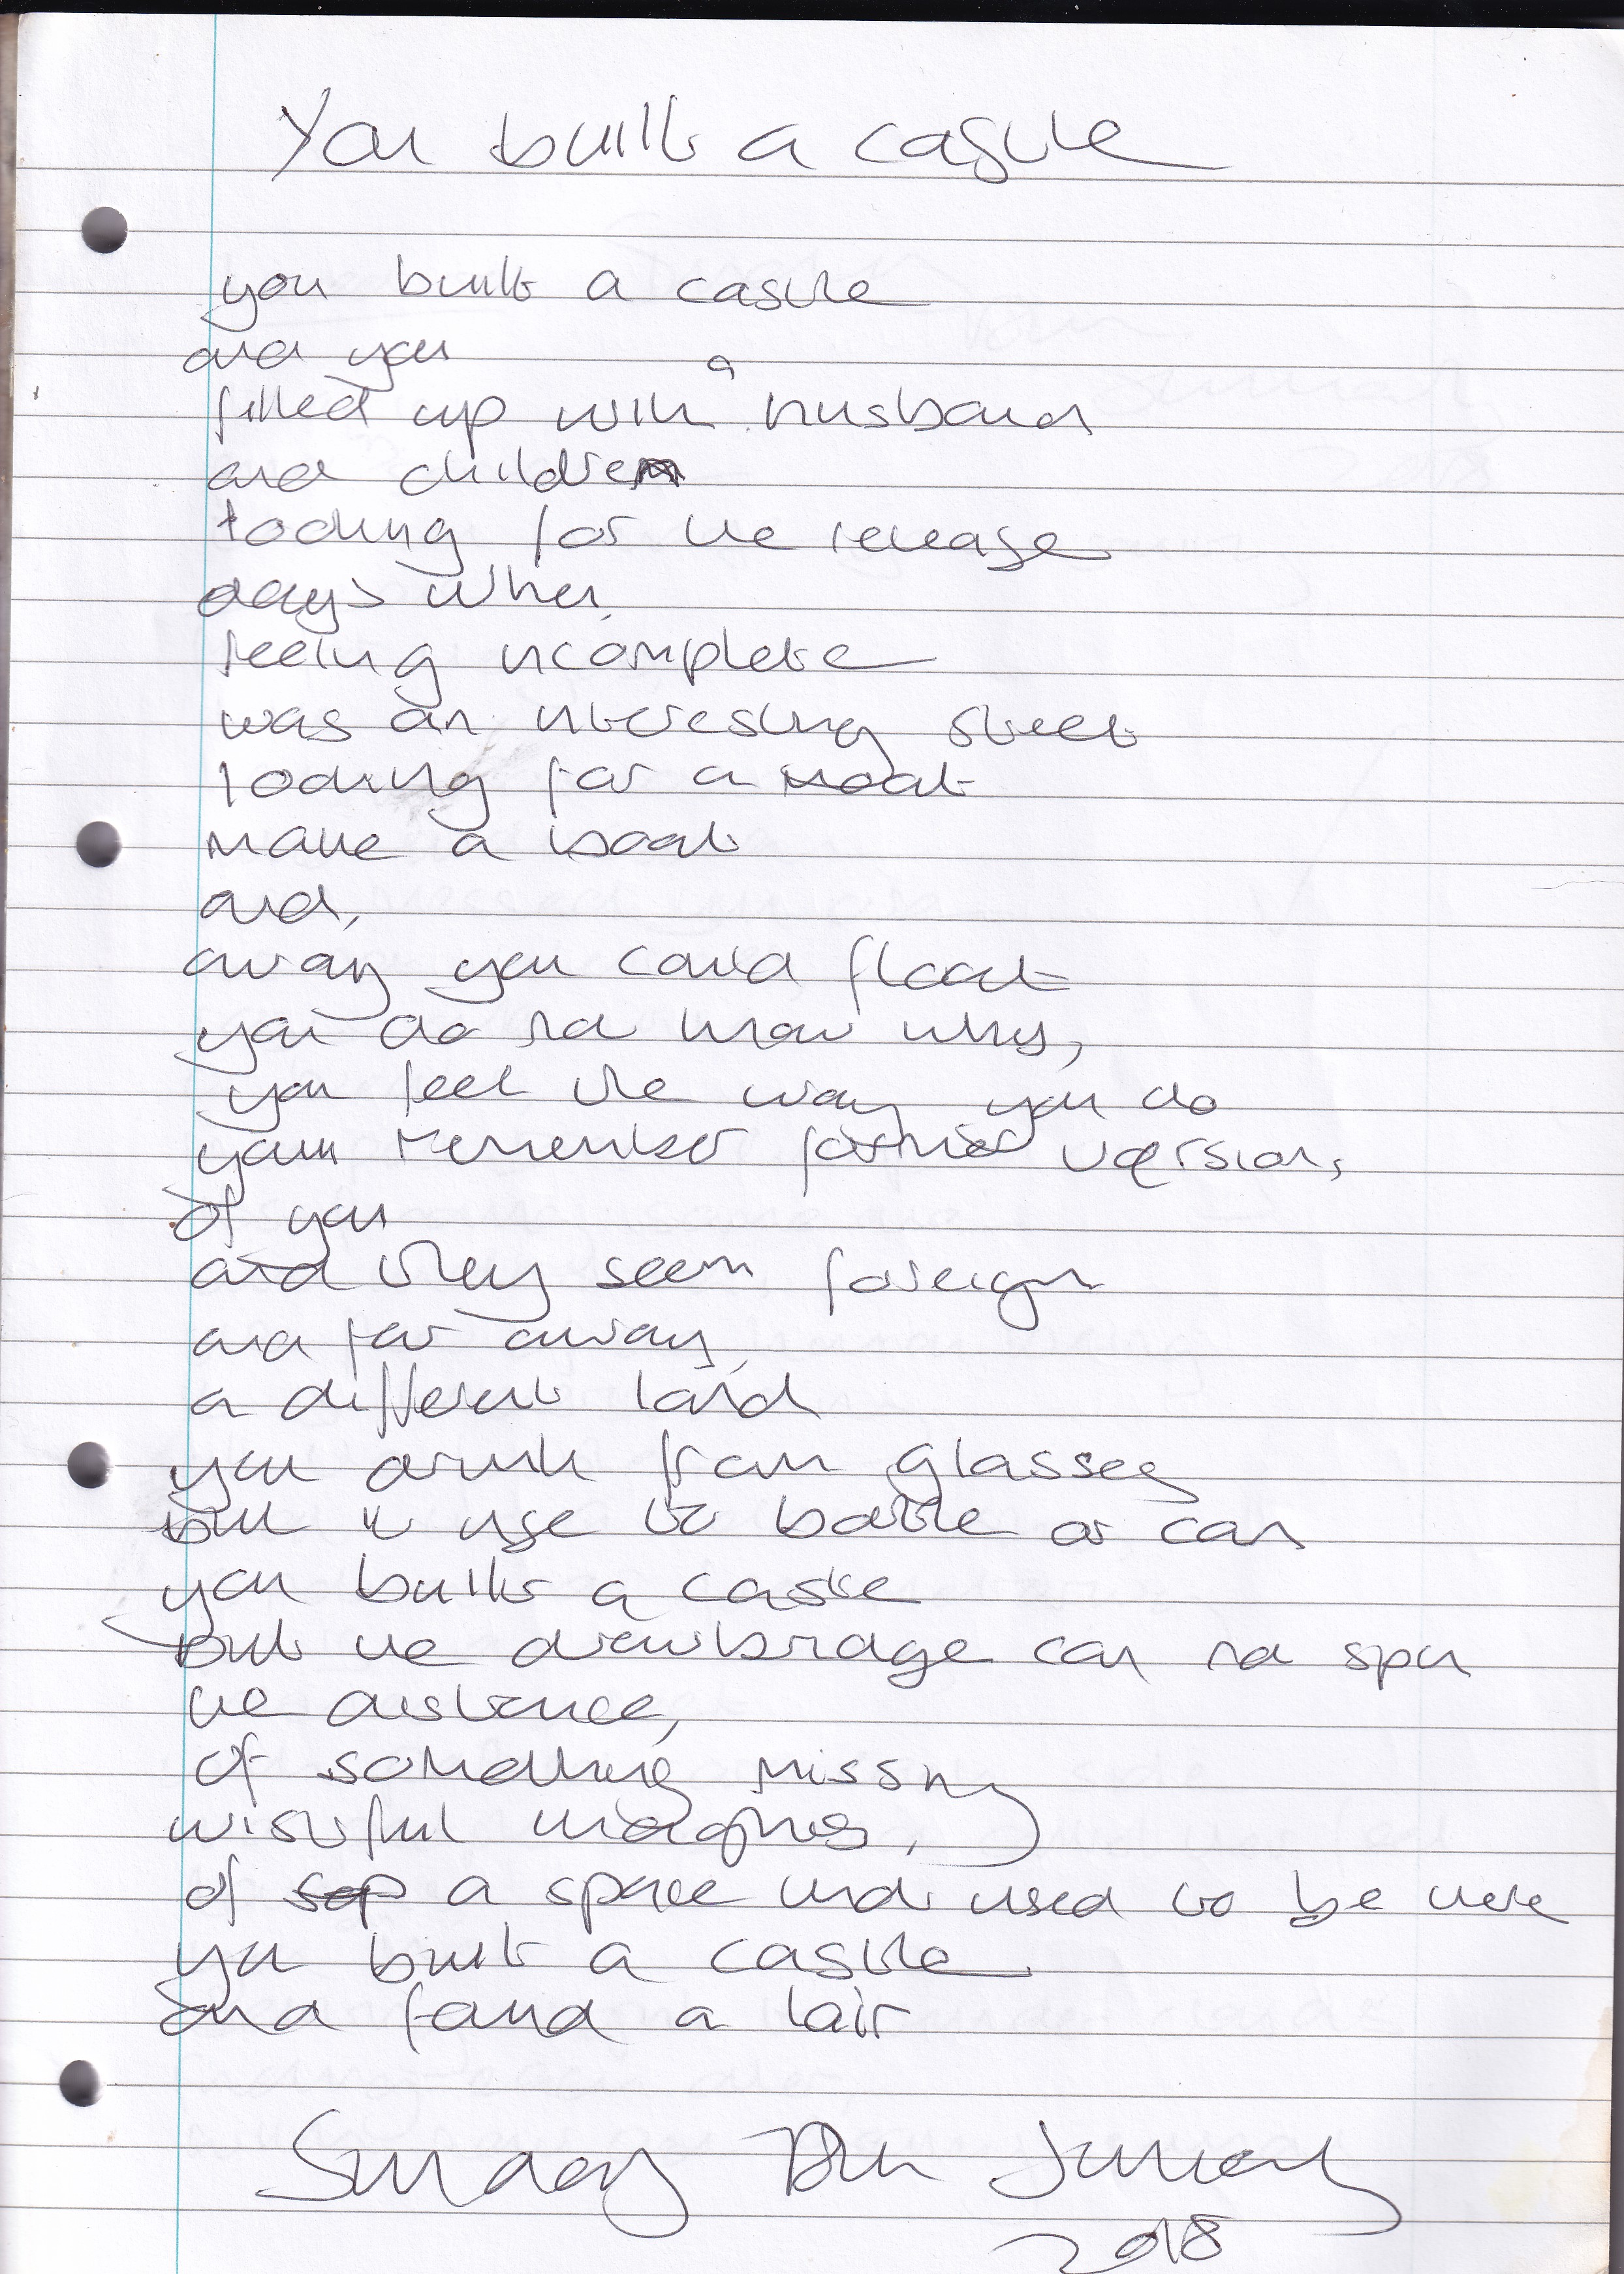 You built a castle
you built a castle
and you
filled up with a husband
and children
looking for the release
days when
feeling incomplete
was an interesting street
looking for a moat
make a boat
and,
away you could float
you do not know why,
you feel the way you do
you remember former versions
of you
and they seem foreign
and far away,
a different land
you drink from glasses
but it use to bottle or can
you built a castle
but the drawbridge can not span
the distance,
of something missing
wistful imagines,
of a space that used to be there
you built a castle
and found a lair
Sunday January
2018